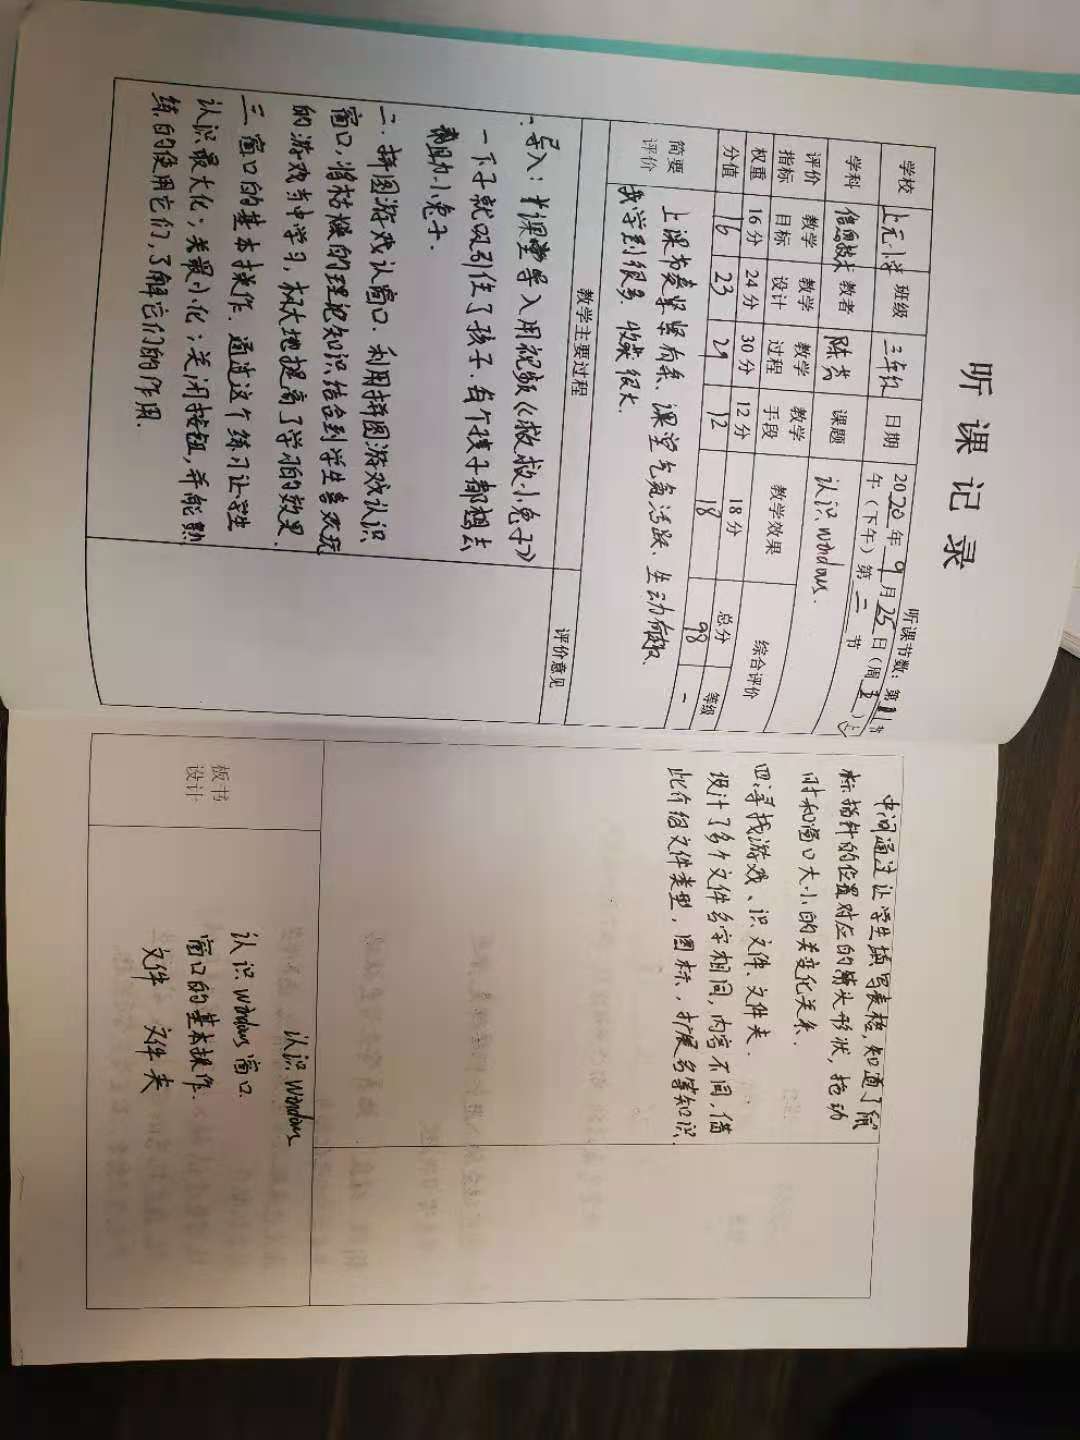 听课记录
听课节数：第 节
学校 上元小学 班级 三年级 日期 2020年9月25日（周五）上
学科 信息技术 教者 陈 课题 认识windows. 午（下午）第二节
评价指标 教学目标 教学设计 教学过程 教学手段 教学效果 综合评价
权重 16分 24分 30分 12分 18分 总分 等级
分值 16 23 29 12 18 98
简要评价 上课书 紧紧有条、课堂气氛活跃、生动有趣.
我学到很多，收获很大.
教学主要过程 评价意见
一.导入：课堂导入用视频《救救小兔子》
一下子就吸引住了孩子.每个孩子都想去
帮助小兔子.
二.拼图游戏认窗口.利用拼图游戏认识
窗口，将枯燥的理论知识结合到学生喜欢玩
的游戏当中学习，极大地提高了学习的效果.
三.窗口的基本操作.通过这个练习让学生
认识最大化；最小化；关闭按钮，并能熟
练的使用它们，了解它们的作用.
中间通过让学生填写表格，知道了鼠
标指针的位置对应的箭头形状，拖动
时和窗口大小的变化关系.
四.寻找游戏、识文件、文件夹.
设计了多个文件名字相同，内容不同，借
此介绍文件类型，图标，扩展名等知识.
板书设计
认识windows
认识windows窗口.
窗口的基本操作.
文件 文件夹